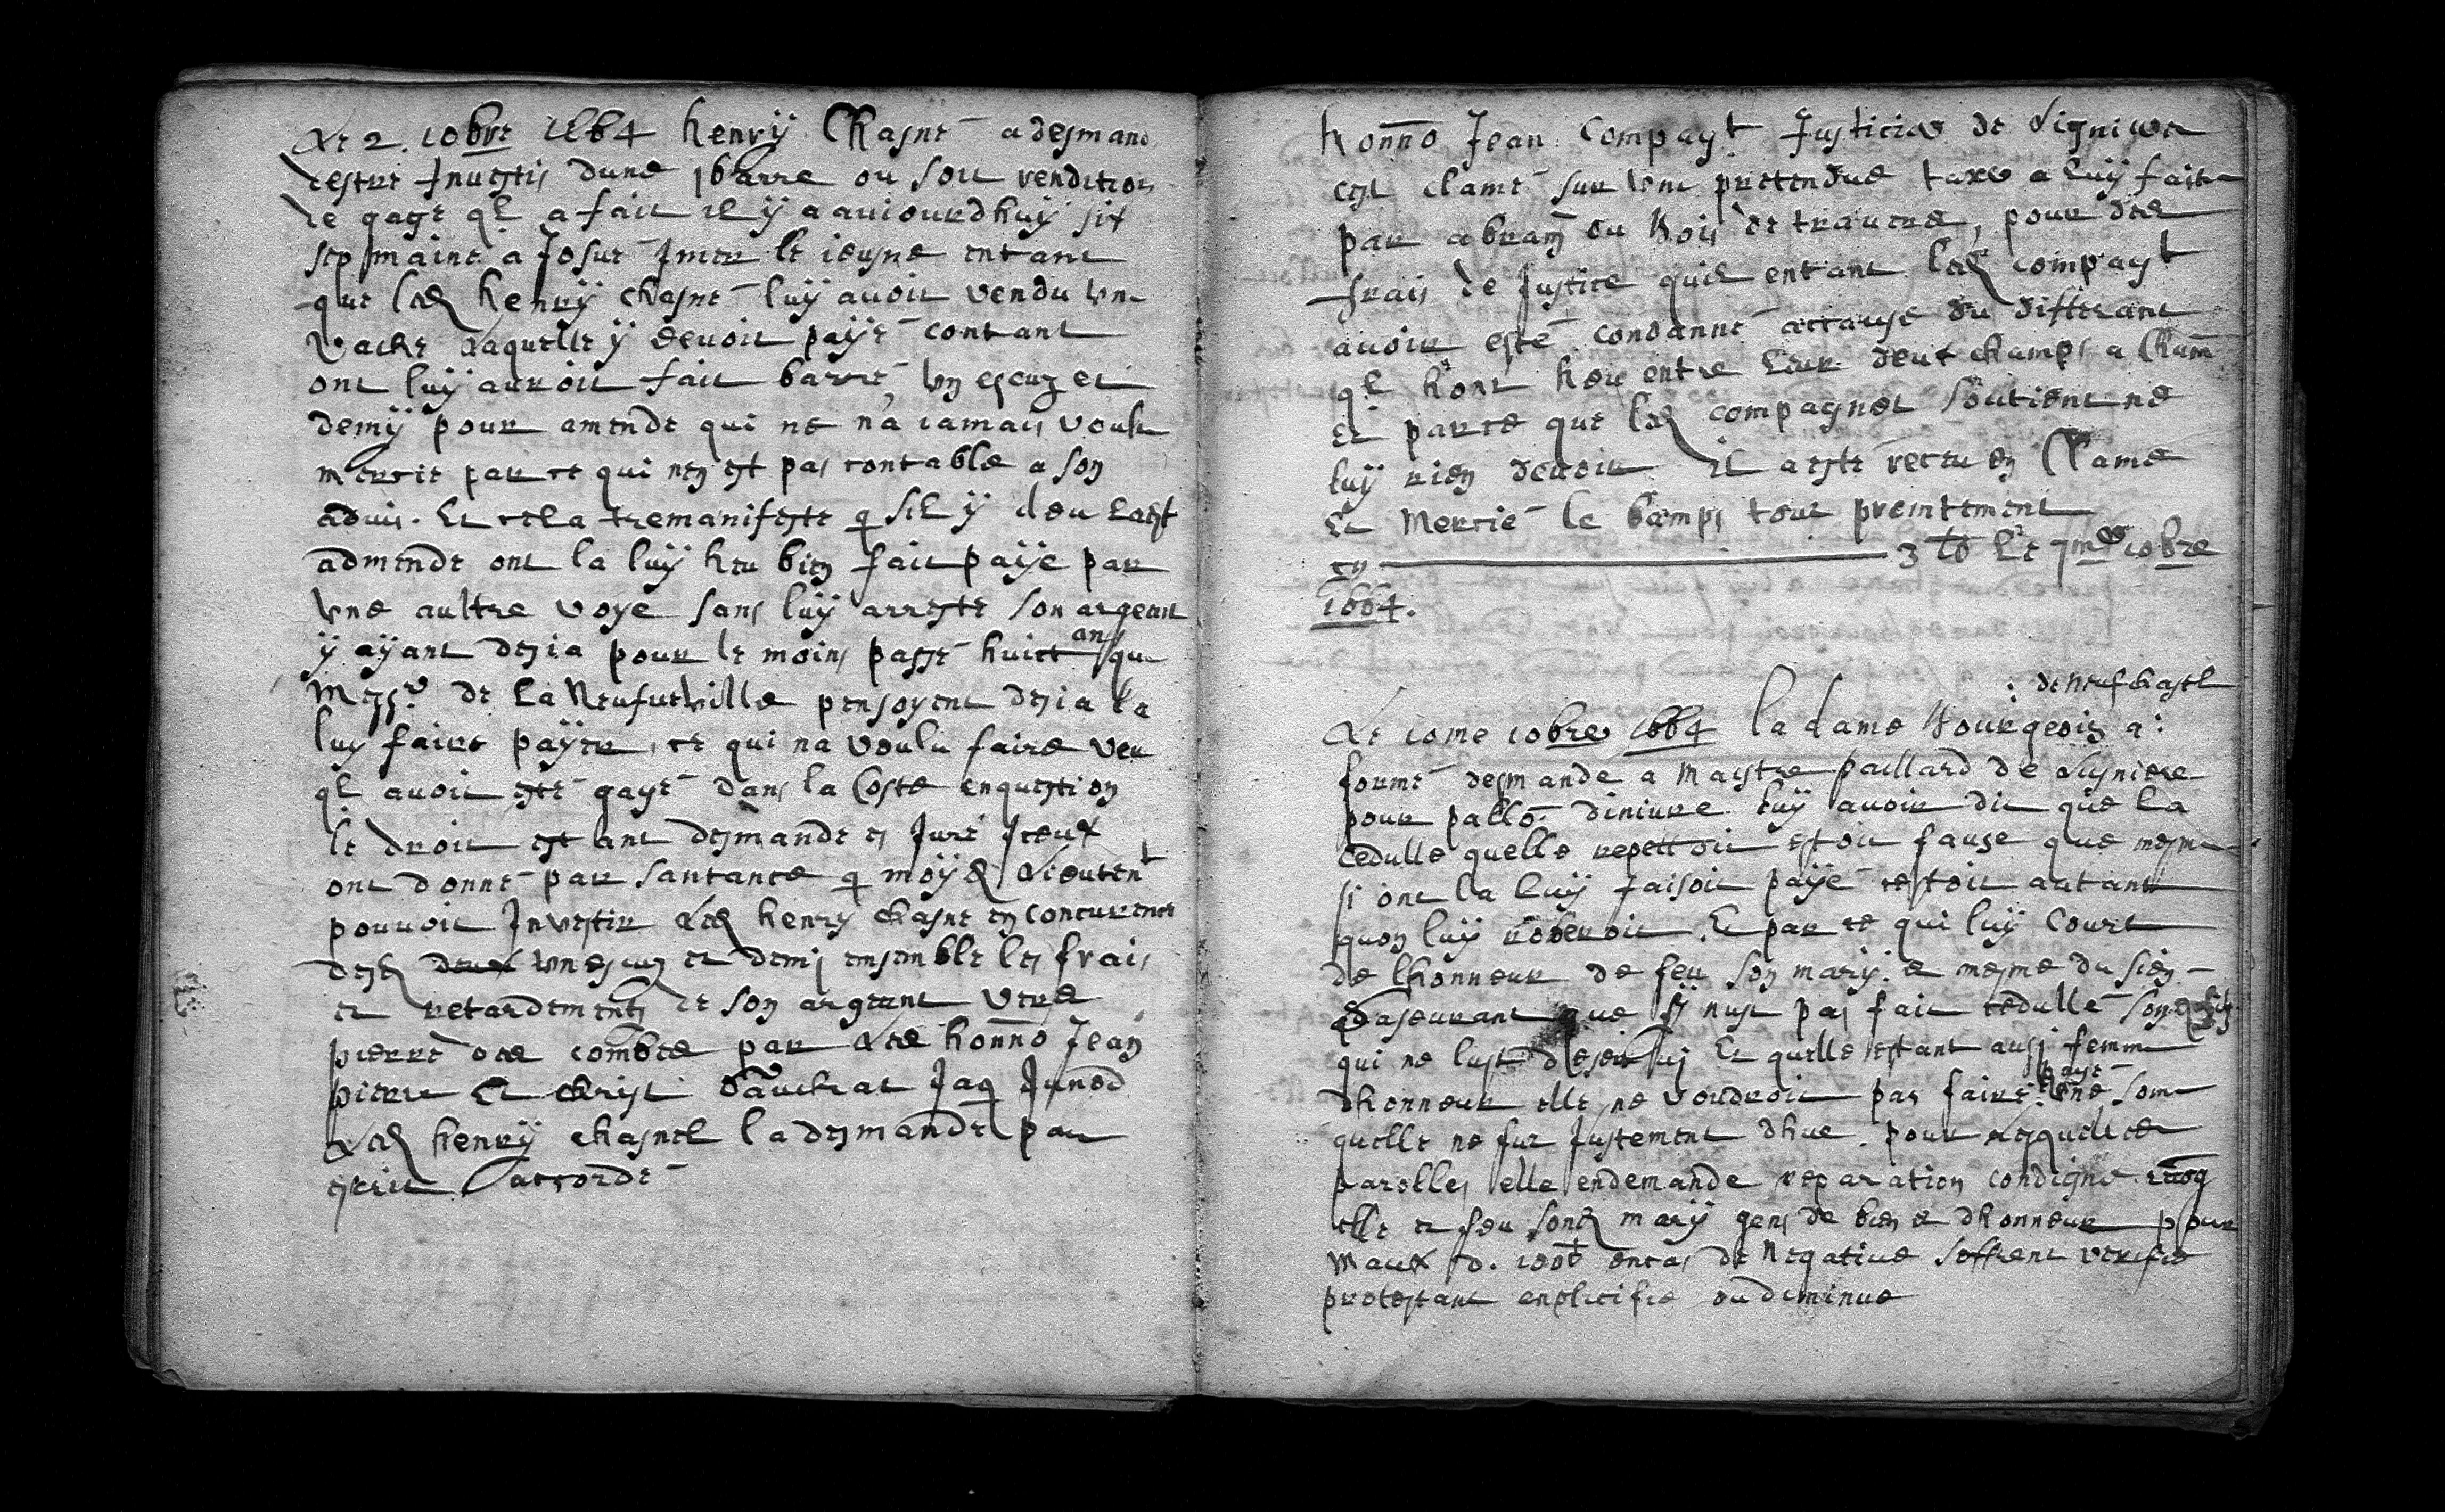 Le 2. 10bre 1664 henrÿ Chasne a desmand
destre Jnvestis dune barre ou soit vendition
de gage ql a fait il ÿ a auiourdhuÿ six
sepmaine a Josue Jmer le ieusne entant
que led henrÿ chasne luÿ avoit vendu une
vache laquelle ÿ devoit paÿe contant
ont luÿ auroit fait barre un escuz et
demÿ pour amende qui ne na iamais voulu
mercie par ce qui nen est pas contable a son
advis. Et cela tremanifeste q sil ÿ deu
admende ont la luÿ heu bien fait paÿe par
une aultre voye sans luÿ arreste son argent
ÿ aÿant desia pour le moins passe huict ans que
Messr de La Neufveville pensoyent desia la
luy faire paÿer, ce qui na voulu faire veu
ql avoit este gage dans la Coste enquestion
le droit estant desmande es Jure Jceux
ont donne par santance q moÿ d Lieutent
pouvoit Jnvestir led henry chasne en concurence
desd un escuz et demÿ ensemble les frais
et retardements de son argent vers
pierre des combes par les honno Jean
pierre Et christ Jaq Junod
Led henrÿ chasnel la desmande par
escrit accorde
honno Jean Compagt Justicier de Ligniere
cest clame sur une pretendue taxe a luÿ faite
par abram du bois de travers, pour des
frais de Justice quil entant led compagt
avoir este condanne accause du differant
ql hont heu entre leur deux champs a Chum
et parce que led compagnet soutient ne
luÿ rien devoir il a este receu en Clame
Et Mercie le bamps tout preintement
en 3 tb Le 7me 10bre
1664.
de neufchastl
Le 10me 10bre 1664 la dame bourgeois a:
forme desmande a Maistre paillard de Lignieres
pour pallo. diniure luÿ avoir dit que la
cedulle quelle repettoit estoit fause que mesme
si ont la luÿ faisoit paÿe cestoit autant
quon luÿ roberoit. Et par ce qui luÿ Court
de lhonneur de feu son marÿ. e mesme du sien
que sÿ nust pas fait cedulle
qui ne lust Et quelle estant aussj femme
dhonneur elle ne voudroit pas faire paye une some
quelle ne fut Justement dhue. pour lesquelles
parolles elle endemande reparation condigne
elle et feu sond marÿ gens de bien e dhonneur pour
maux encas de Negative soffrent verifie
protestant emplicifie ou diminue